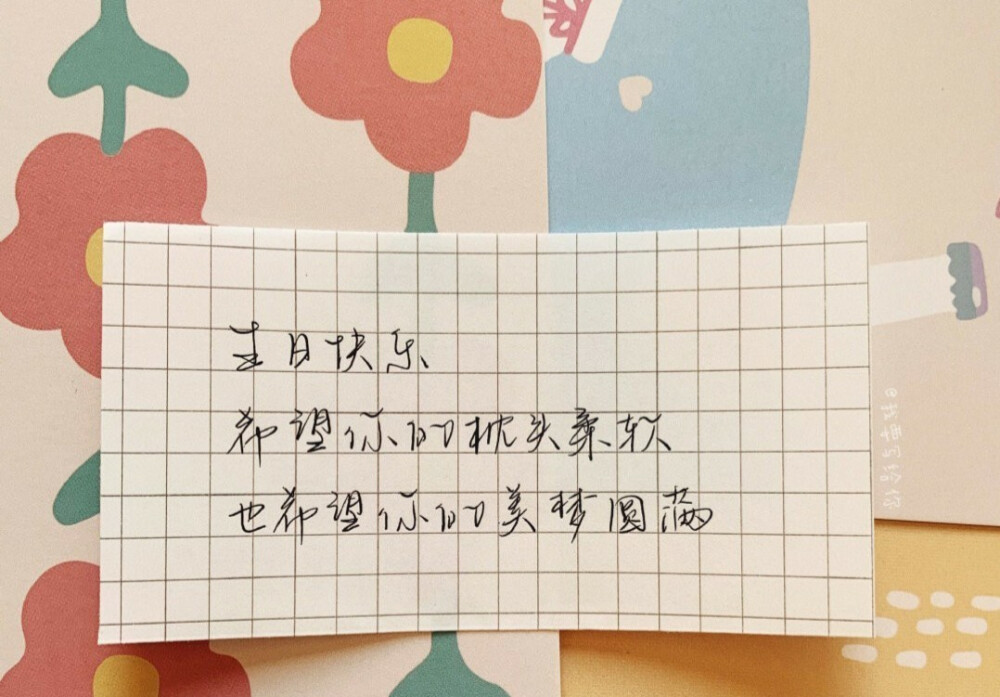 生日快乐
希望你的枕头柔软
也希望你的美梦圆满